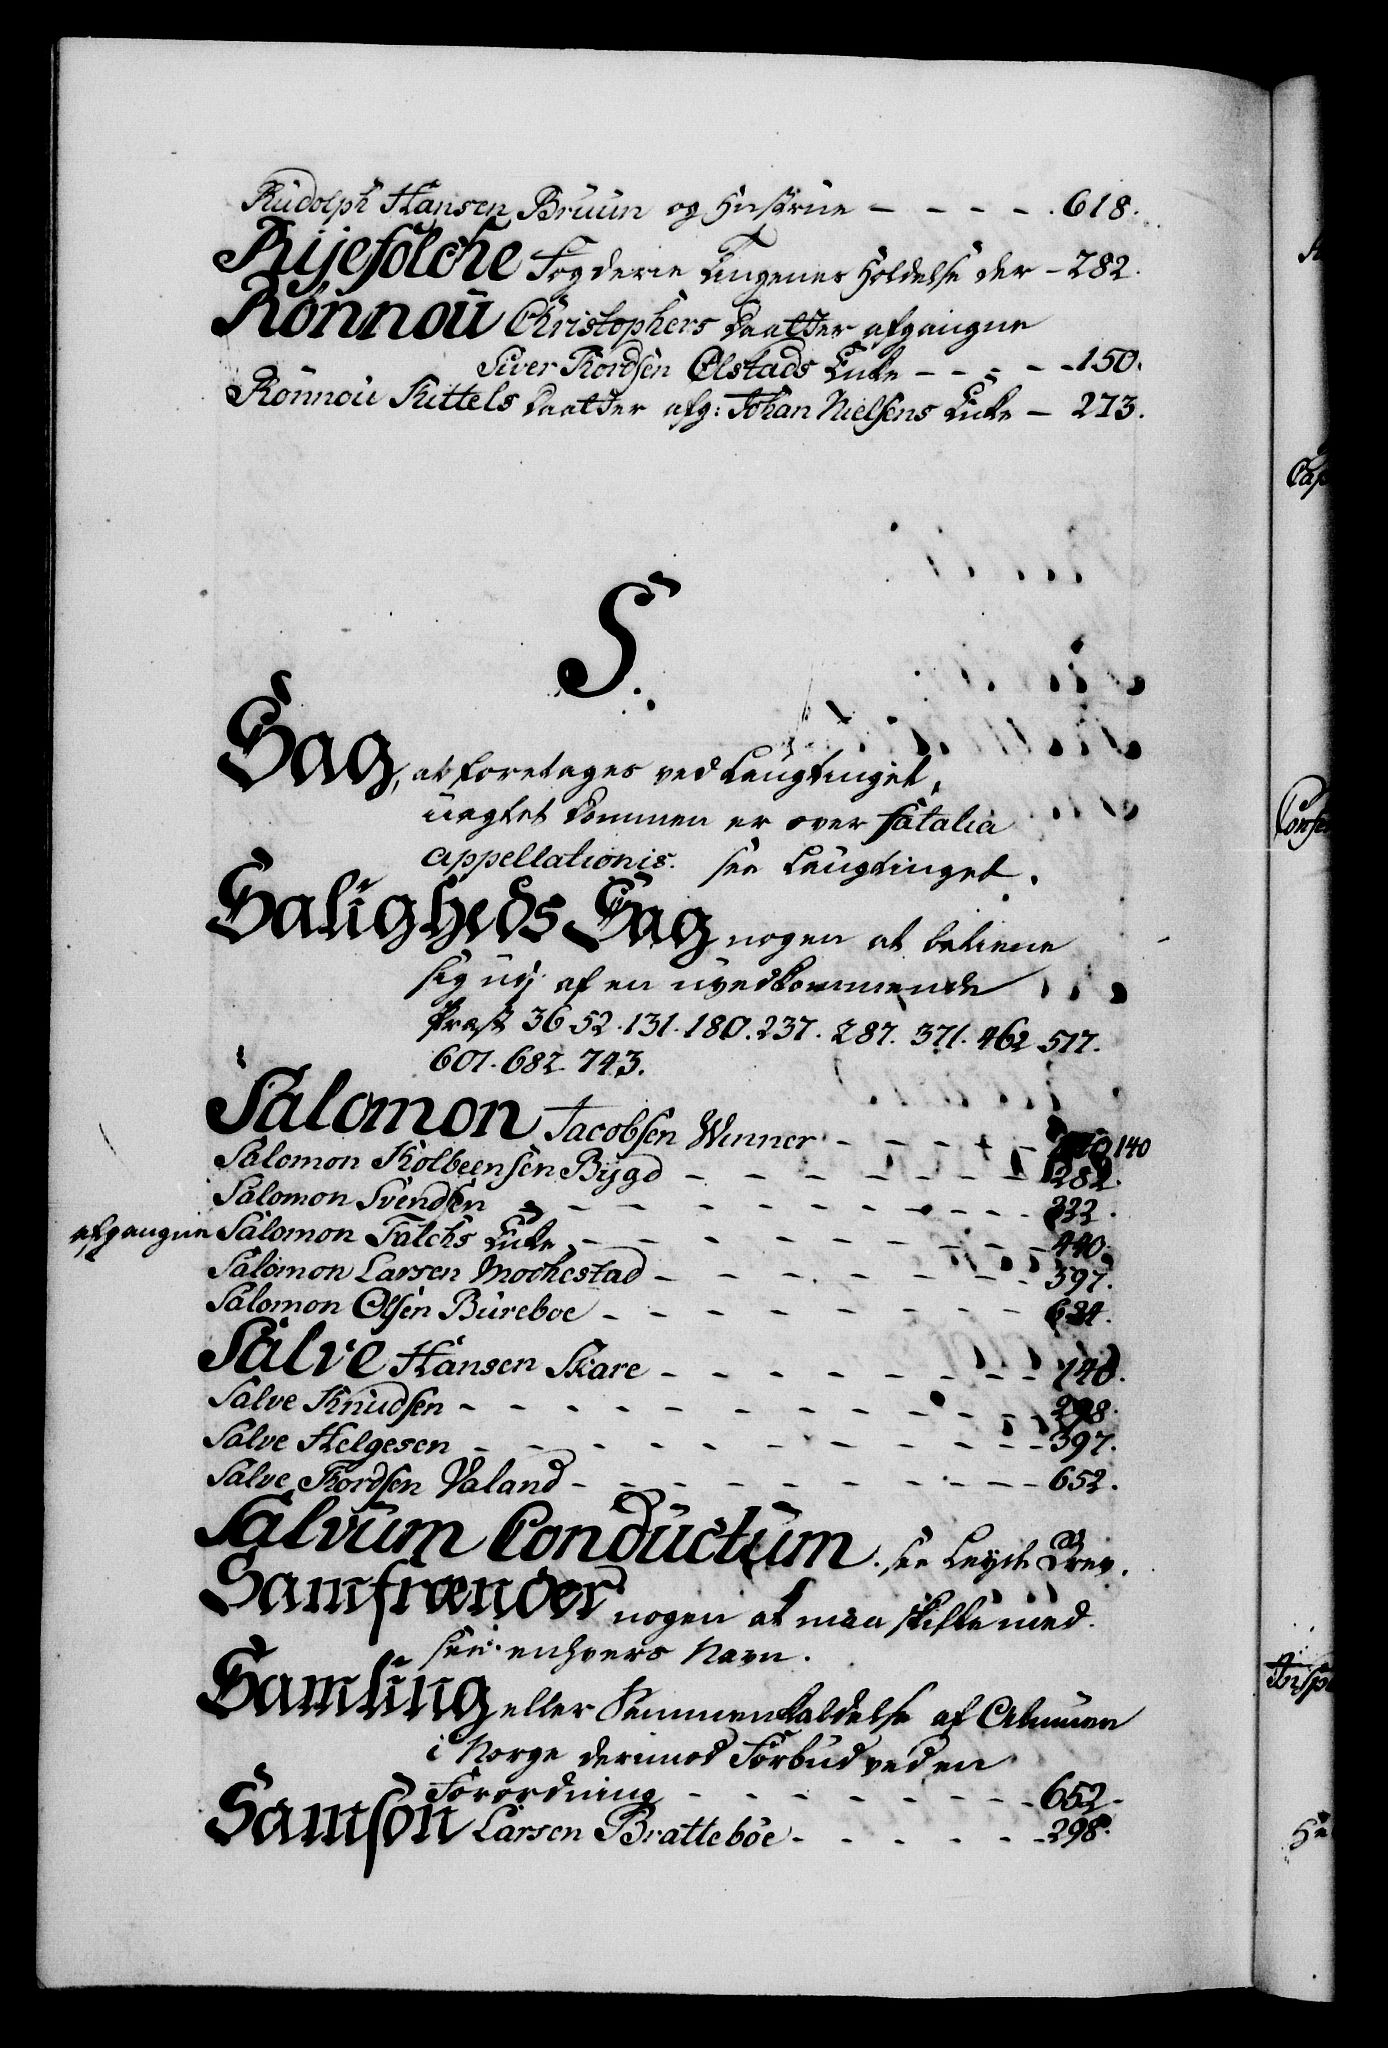 Rudolph Hansen Bruun og Hustrue - - - - . 618.
Ryefölche Fogderie Tingenes Holdelse der - 282.
Rönnou Christophers daatter afgangne
Siver Tordsen Ølstads Enke - - - - - 150.
Rönnou Kittels daatter afg: Johan Nielsens Enke - 273.
S.
Sag, at foretages ved Laugtinget,
uagtet Dommen er over fatalia
appellationis. see Laugtinget.
Saligheds Sag nogen at betiene
sig udj af en uvedkommende
Præst 36 52. 131. 180. 237. 287. 371. 462 517.
601. 682. 743.
Salomon Jacobsen Winner - - - - - 140
Salomon Kolbeensen Bygd - - - - - - - 282.
Salomon Svendsen - - - - - - - - - 322.
afgangne Salomon Falchs Enke - - - - - - - - - 440.
Salomon Larsen Mochestad - - - - - - - 597.
Salomon Olsen Bureboe - - - - - - - - 634.
Salve Hansen Skare - - - - - - - - 140.
Salve Knudsen - - - - - - - - - - - 298.
Salve Helgesen - - - - - - - - - - 397.
Salve Tordsen Valand - - - - - - - - - 652.
Salvum Conductum. see Leyde Brev.
Samfrænder nogen at maa skifte med.
see enhvers Navn.
Samling eller Sammenkaldelse af Almuen
i Norge derimod Forbud ved en
Forordning - - - - - - - - 652.
Samson Larsen Bratteböe - - - - - - 298.